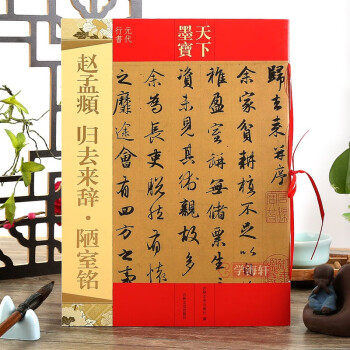 天下
墨寶
元代
行書
赵孟頫 归去来辞·陋室铭
歸去來并序
余家貧耕植不足
稚盈室缾無儲粟生生
資未見其術親故多
余為長吏脫然有懷
之靡途會有四方之
学海轩